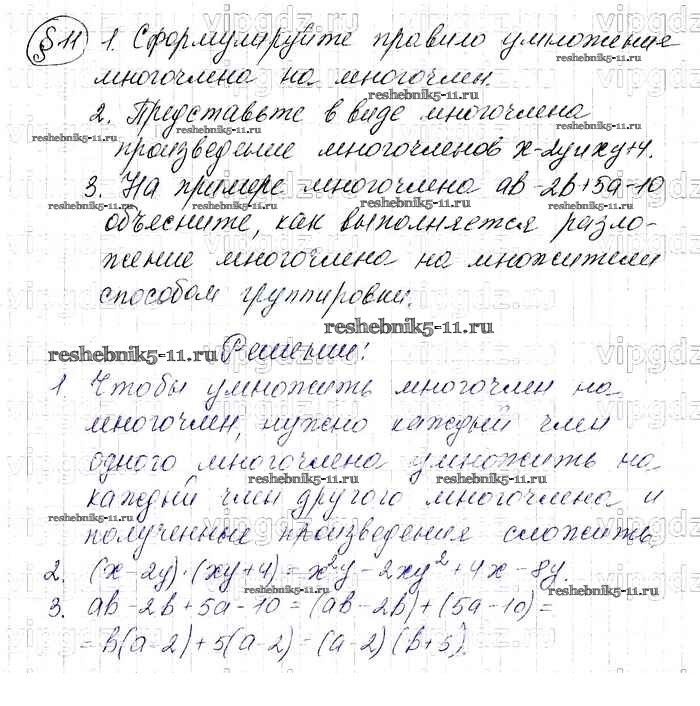 § 11 1. Сформулируйте правило умножения
многочлена на многочлен.
2. Представьте в виде многочлена
произведение многочленов x-2y и xy+4.
3. На примере многочлена ab-2b+5a-10
объясните, как выполняется разло-
жение многочлена на множители
способом группировки.
Решение:
1 Чтобы умножить многочлен на
многочлен, нужно каждый член
одного многочлена умножить на
каждый член другого многочлена и
полученные произведения сложить.
2. (x-2y)·(xy+4)=x²y-2xy²+4x-8y.
3. ab-2b+5a-10=(ab-2b)+(5a-10)=
=b(a-2)+5(a-2)=(a-2)(b+5).
reshebnik5-11.ru
vipgdz.ru